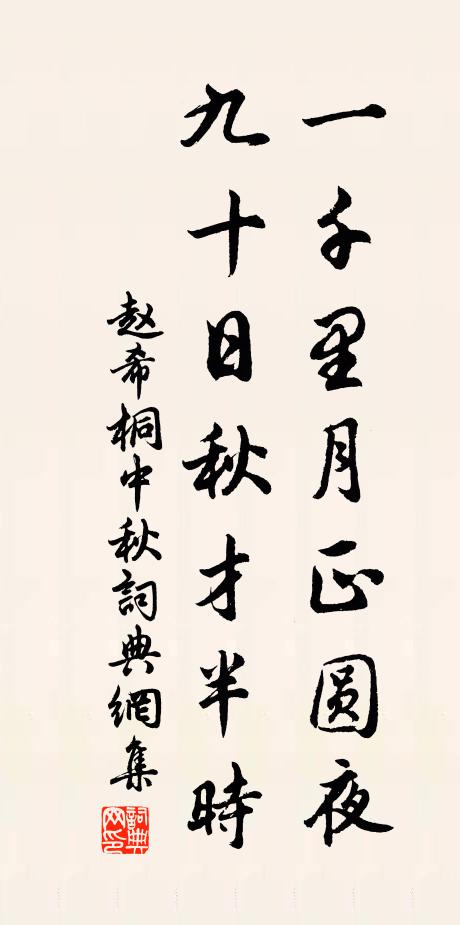 一千里月正圆夜
九十日秋才半時
赵希桐中秋詞典網集
詞典网印